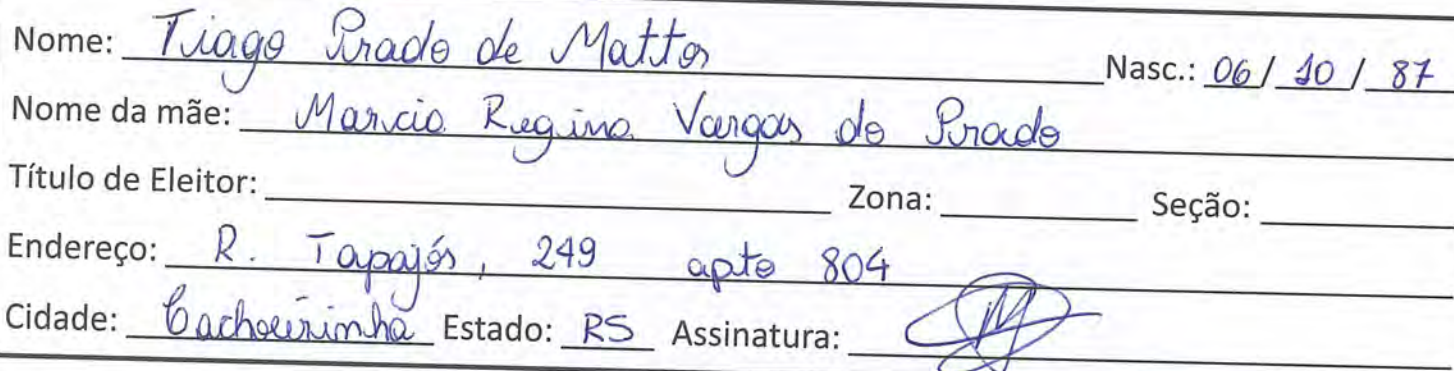 Nome: Tiago Prado de Mattos Nasc.: 06/ 10 / 87
Nome da mãe: Marcia Regina Vargas do Prado
Título de Eleitor: Zona: Seção:
Endereço: R. Tapajós, 249 apto 804
Cidade: Cachoeirinha Estado: RS Assinatura: